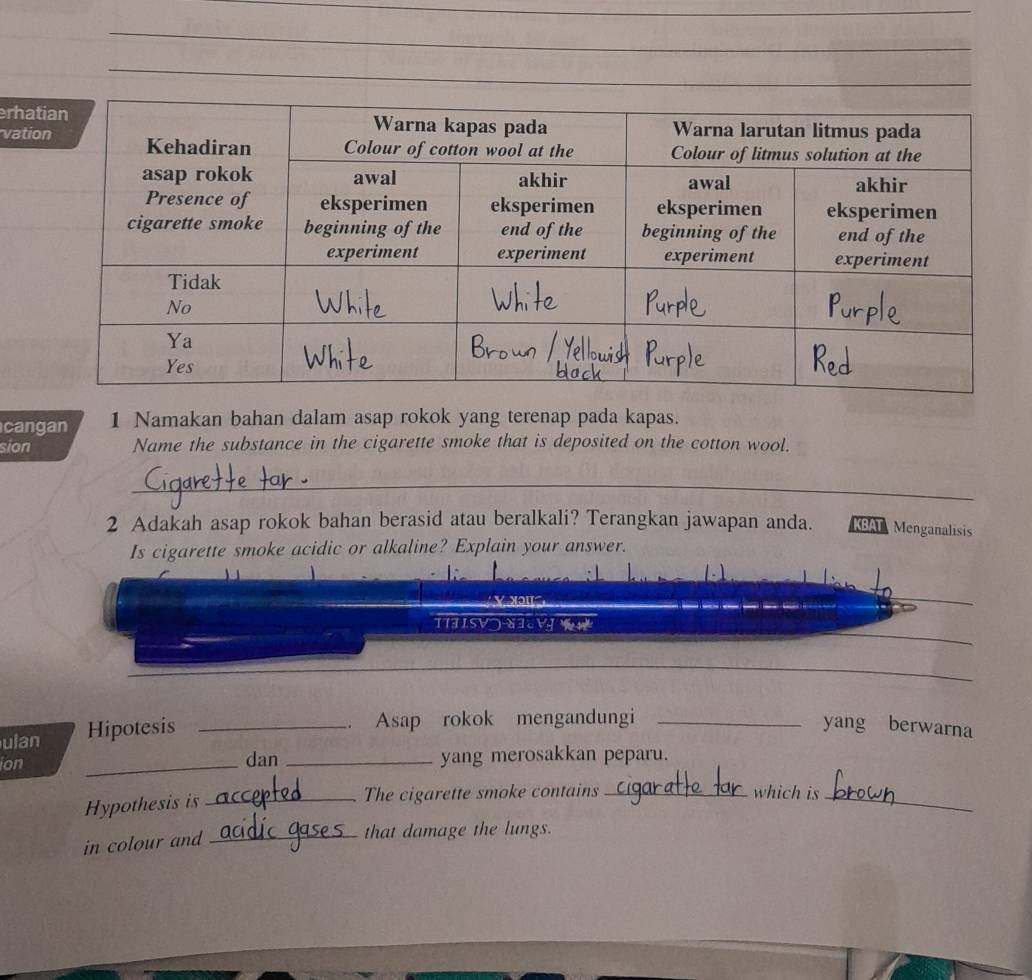 erhatian
vation
Kehadiran
asap rokok
Presence of
cigarette smoke
Warna kapas pada
Colour of cotton wool at the
Warna larutan litmus pada
Colour of litmus solution at the
awal
eksperimen
beginning of the
experiment
akhir
eksperimen
end of the
experiment
awal
eksperimen
beginning of the
experiment
akhir
eksperimen
end of the
experiment
Tidak
No
White
White
Purple
Purple
Ya
Yes
White
Brown / Yellowish
black
Purple
Red
cangan
sion
1 Namakan bahan dalam asap rokok yang terenap pada kapas.
Name the substance in the cigarette smoke that is deposited on the cotton wool.
Cigarette tar.
2 Adakah asap rokok bahan berasid atau beralkali? Terangkan jawapan anda. KBAT Menganalisis
Is cigarette smoke acidic or alkaline? Explain your answer.
to
Click X
FABER-CASTELL
ulan
ion
Hipotesis ____. Asap rokok mengandungi ____ yang berwarna
____ dan ____ yang merosakkan peparu.
Hypothesis is accepted. The cigarette smoke contains cigaratte tar which is brown
in colour and acidic gases that damage the lungs.